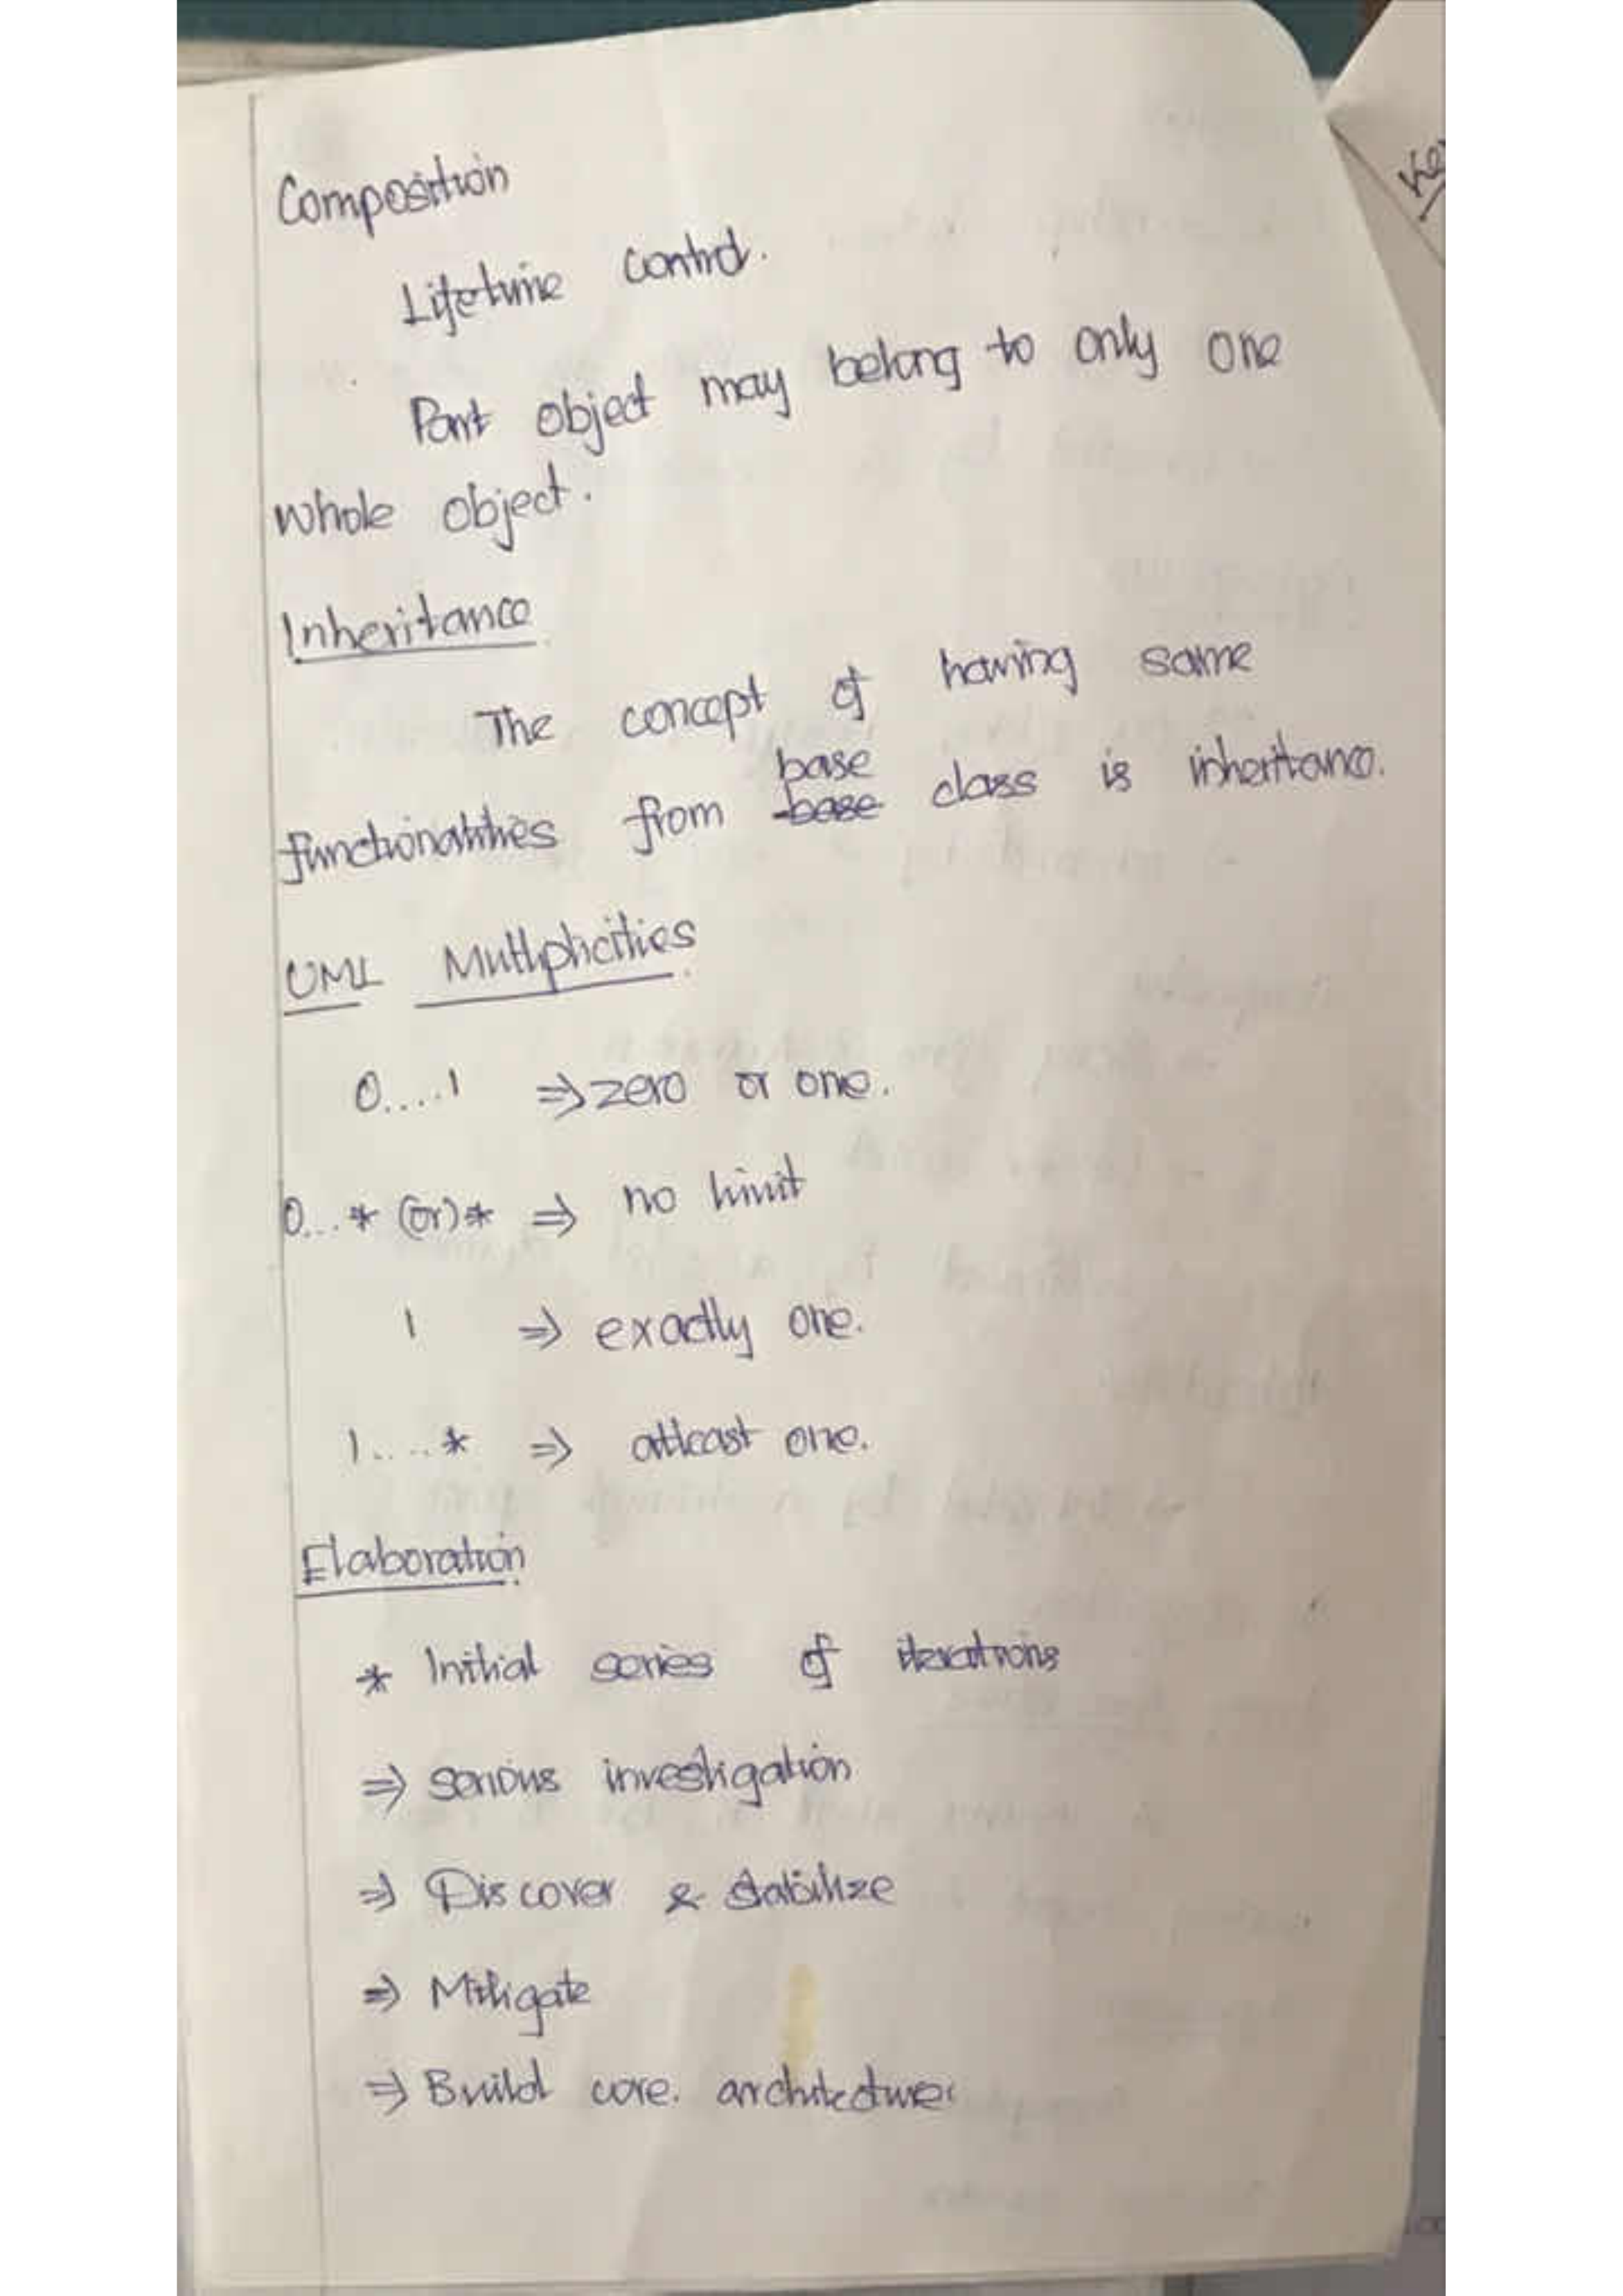 Composition
Lifetime control.
Part object may belong to only one
whole object.
Inheritance
The concept of having same
base
functionalities from ~~base~~ class is inheritance.
UML Multiplicities
0....1 ⇒ zero or one.
0...* (or) * ⇒ no limit
1 ⇒ exactly one.
1....* ⇒ atleast one.
Elaboration
* Initial series of iterations
⇒ serious investigation
⇒ Discover & stabilize
⇒ Mitigate
⇒ Build core. architecture.